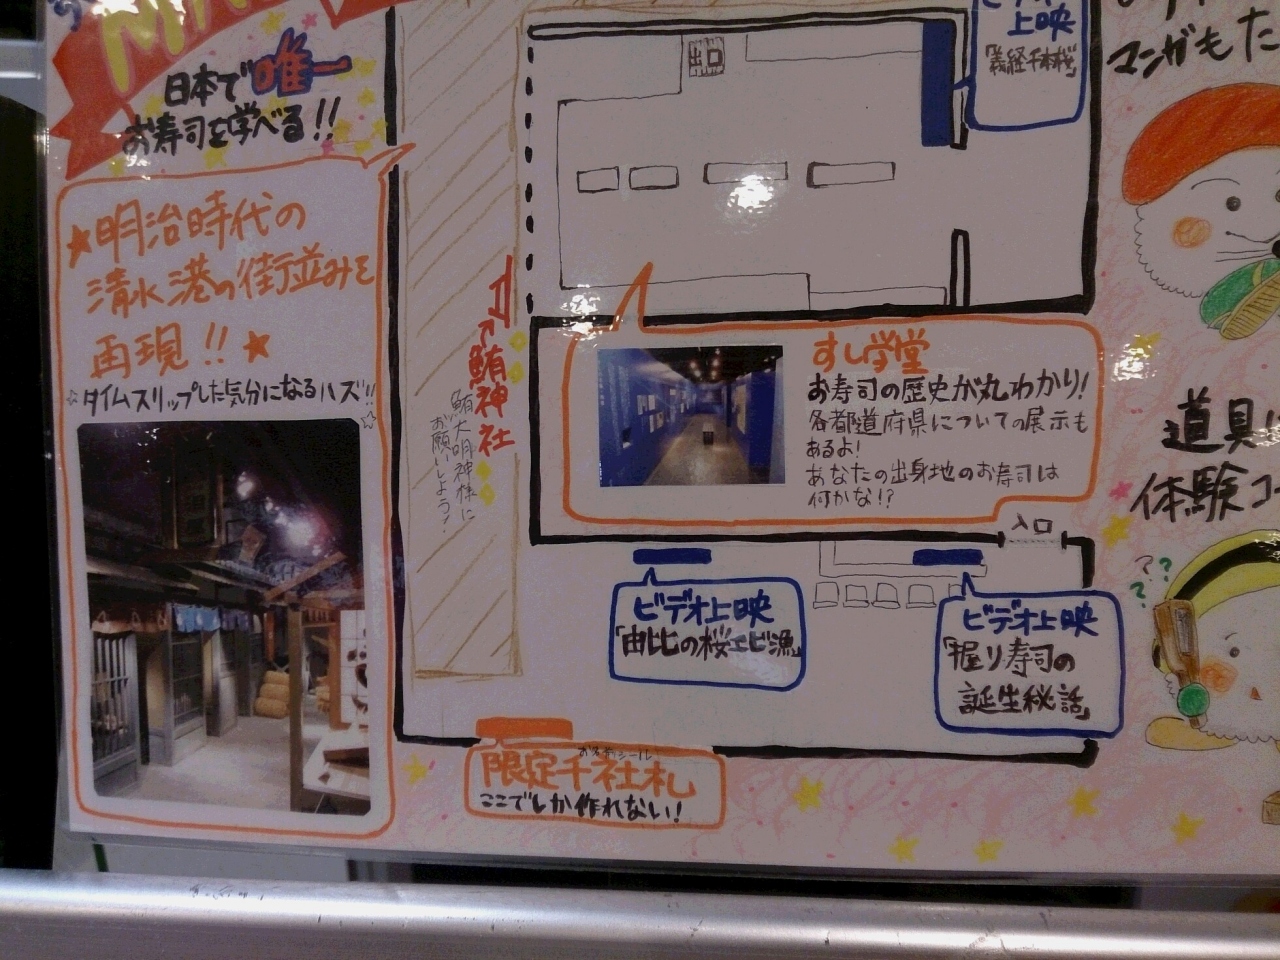 MA
日本で唯一
お寿司を学べる!!
★明治時代の
清水港の街並みを
再現!!★
☆タイムスリップした気分になるハズ!!☆
出口
ビデオ
上映
「義経千本桜」
マンガもた
鮪神社
鮪大明神様に
お願いしよう!
すし学堂
お寿司の歴史が丸わかり!
各都道府県についての展示も
あるよ!
あなたの出身地のお寿司は
何かな!?
入口
道具
体験コ
??
?
ビデオ上映
「由比の桜エビ漁」
ビデオ上映
「握り寿司の
誕生秘話」
お名前シール
限定千社札
ここでしか作れない!